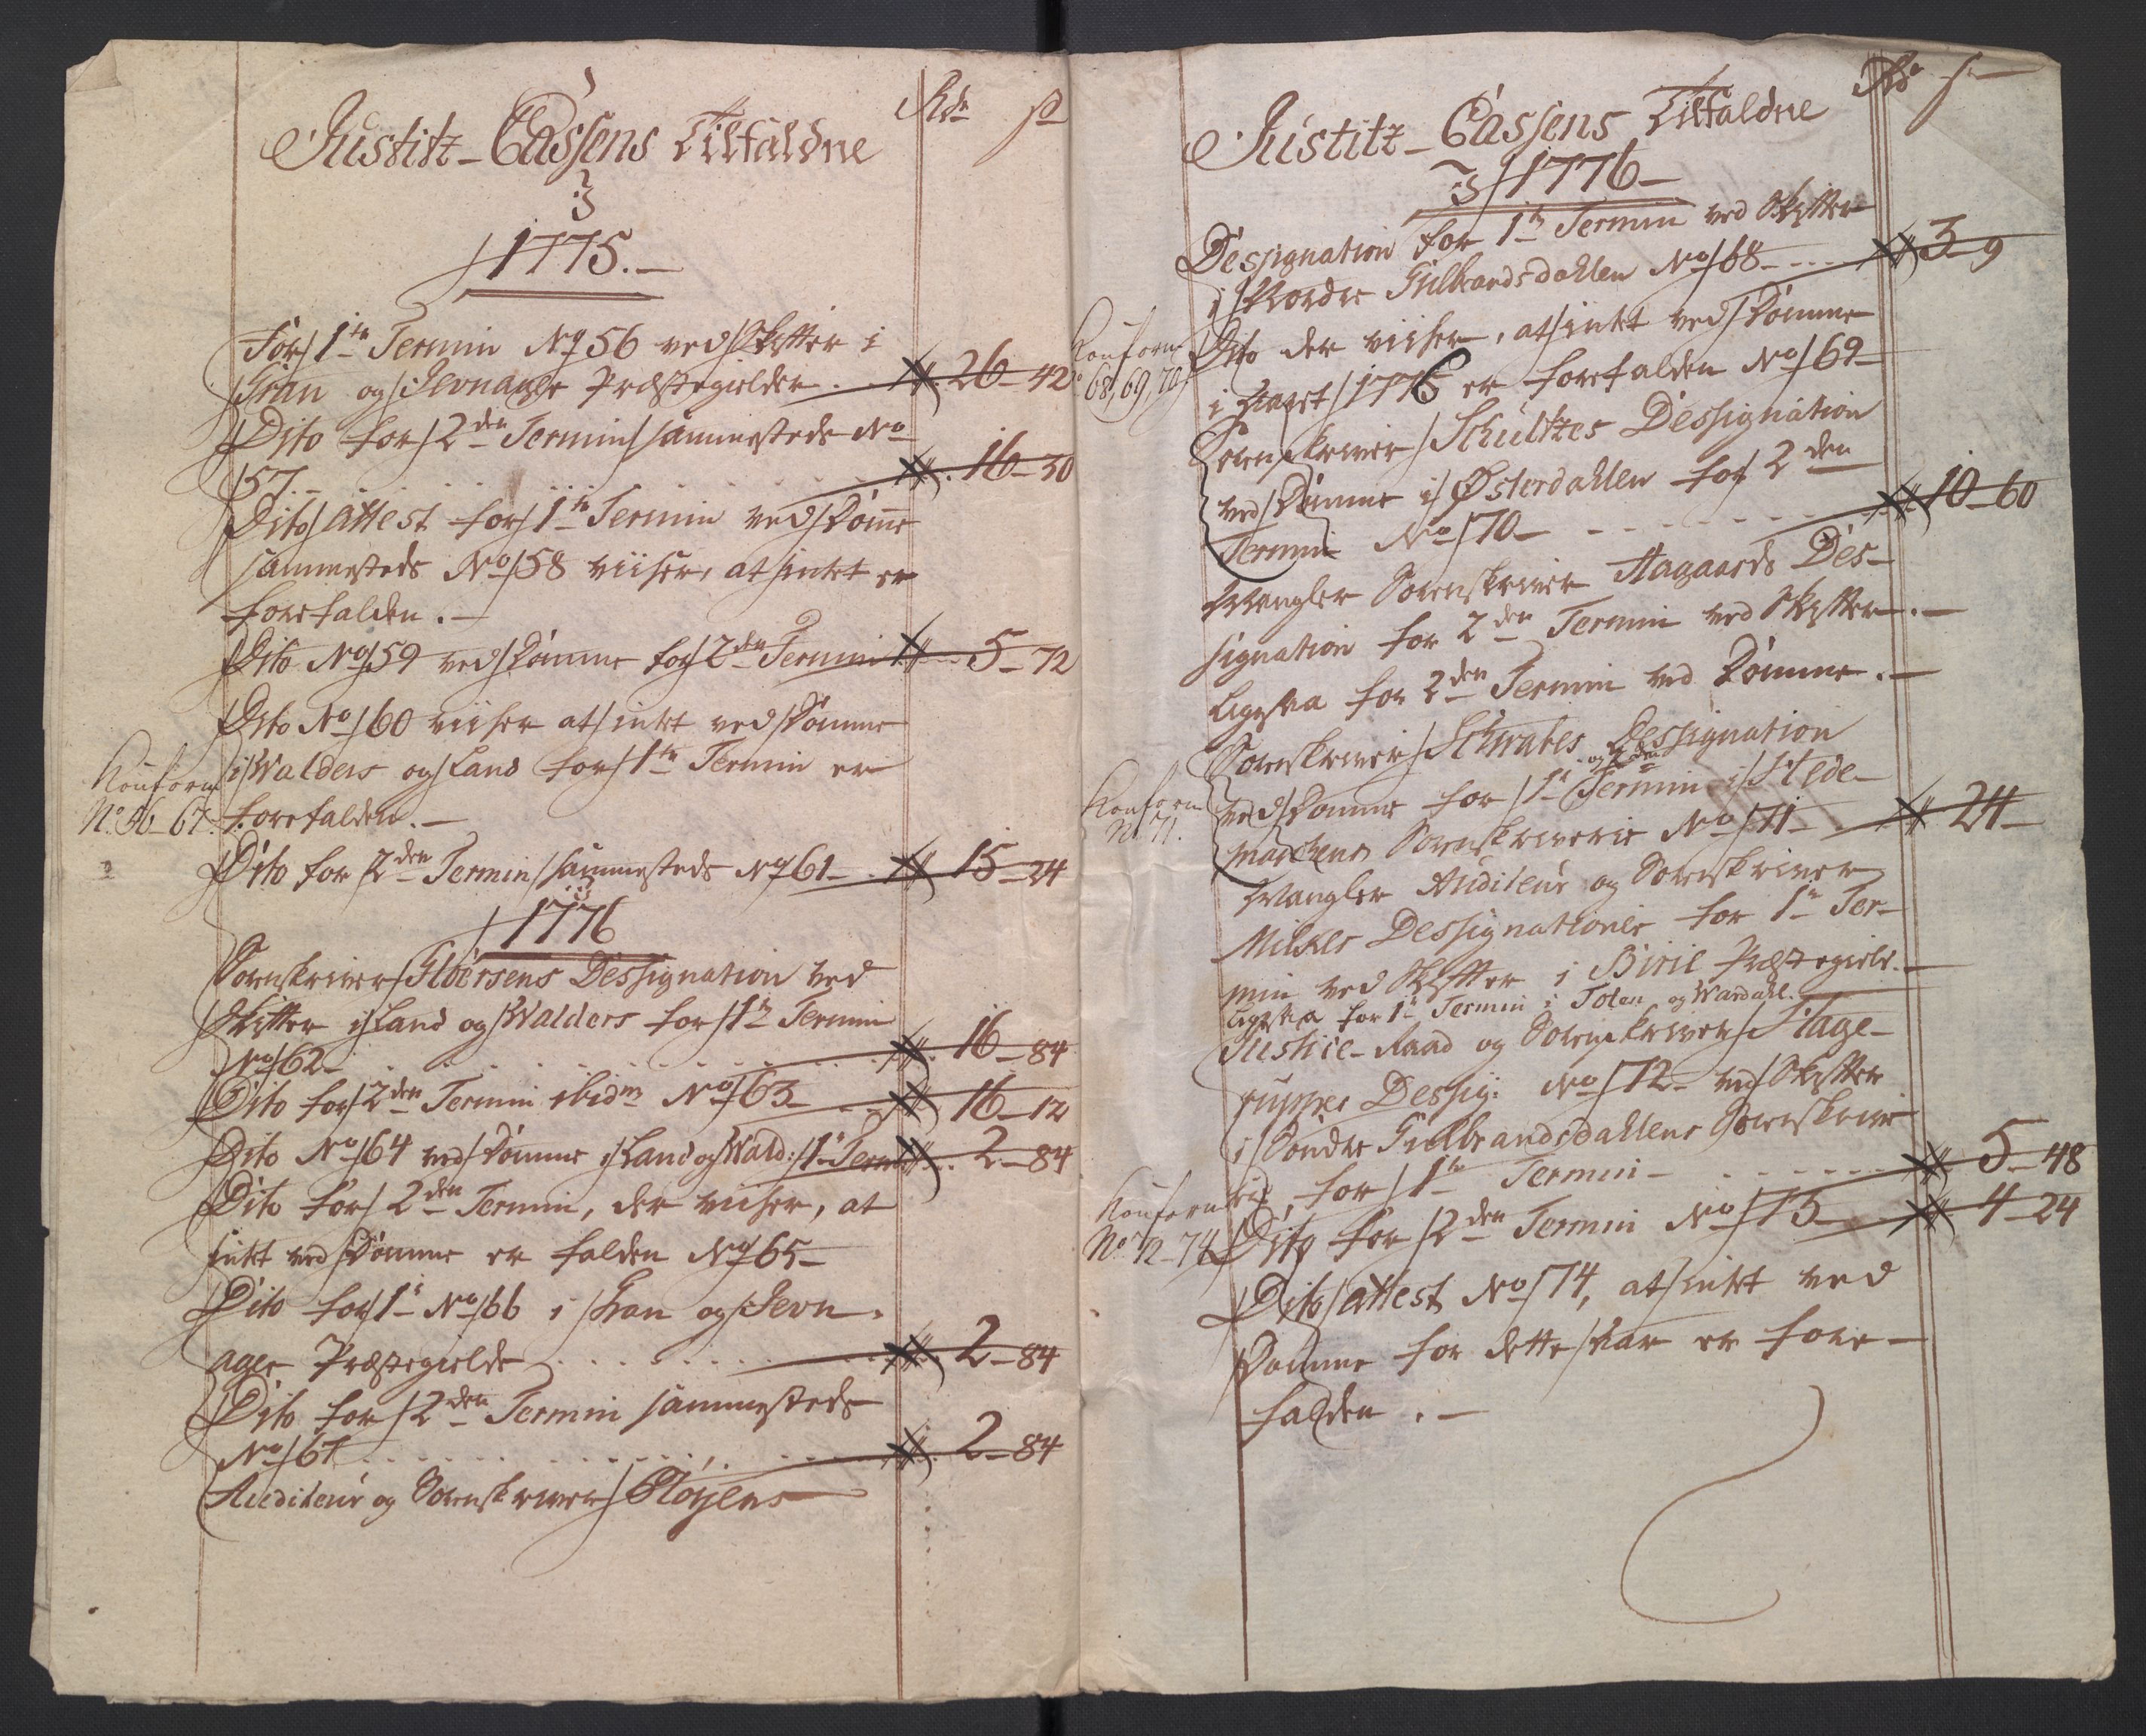 Rdr ß
Justitz-Cassens Tilfaldne
3
1775.
For 1te Termin No 56 ved Skifter i
Gran og Jevnager Præstegielder . . 26 - 42
Dito for 2den Termin sammesteds No
57 - . . . . 16 - 30
Dito Attest for 1te Termin ved Domme
sammesteds No 58 viiser, at intet er
forefalden . -
Dito No 59 ved Domme for 2den Termin . 5 - 72
Dito No 60 viiser at intet ved Domme
i Walders og Land for 1te Termin er
forefalden . -
Konform
No 56 - 67.
Dito for 2den Termin sammesteds No 61 - . 15 - 24
1776
Sorenskriver Ilbersens Dessignation ved
Skifter i Land og Walders for 1te Termin
No 62 - . . . . 16 - 84
Dito for 2den Termin ibidm No 63 - . . 16 - 12
Dito No 64 ved Domme i Land og Wald: 1te Term . . 2 - 84
Dito for 2den Termin, der viiser, at
intet ved Domme er falden No 65 -
Dito for 1te No 66 i Gran og Jevn-
ager Præstegielde . . . . 2 - 84
Dito for 2den Termin sammesteds
No 67 . . . . 2 - 84
Auditeur og Sorenskriver
Rdr ß
Justitz-Cassens Tilfaldne
3 1776 -
Dessignation for 1te Termin ved Skifter
i Nordre Gulbrandsdahlen No 68 - . . . 3 - 9
Konform
No 68, 69, 70
Dito der viiser, at intet ved Domme
i Aaret 1776 er forefalden No 69 -
Sorenskriver Schultzes Dessignation
ved Domme i Østerdahlen for 2den
Termin No 70 - . . . . 10 - 60
Mangler Sorenskriver Aagaards Des-
signation for 2den Termin ved Skifter . -
Ligesaa for 2den Termin ved Domme . -
Sorenskriver Schwabes Dessignation
ved Domme for 1te og 2den Termin i Hede-
Konform
No 71.
markens Sorenskriverie No 71 - 24 -
Mangler Auditeur og Sorenskriver
Dessignationer for 1te Ter-
min ved Skifter i Birie Præstegield . -
Ligesaa for 1te Termin i Toten og Wardahl.
Justice-Raad og Sorenskriver Hage-
rupper Dessig: No 72 - ved Skifter
i Søndre Guldbrandsdahlens Sorenskrive
rie, for 1te Termin - . . . . 5 - 48
Konform
No 72 - 74
Dito for 2den Termin No 73 - 4 - 24
Dito Attest No 74, at intet ved
Domme for dette Aar er fore-
falden . -